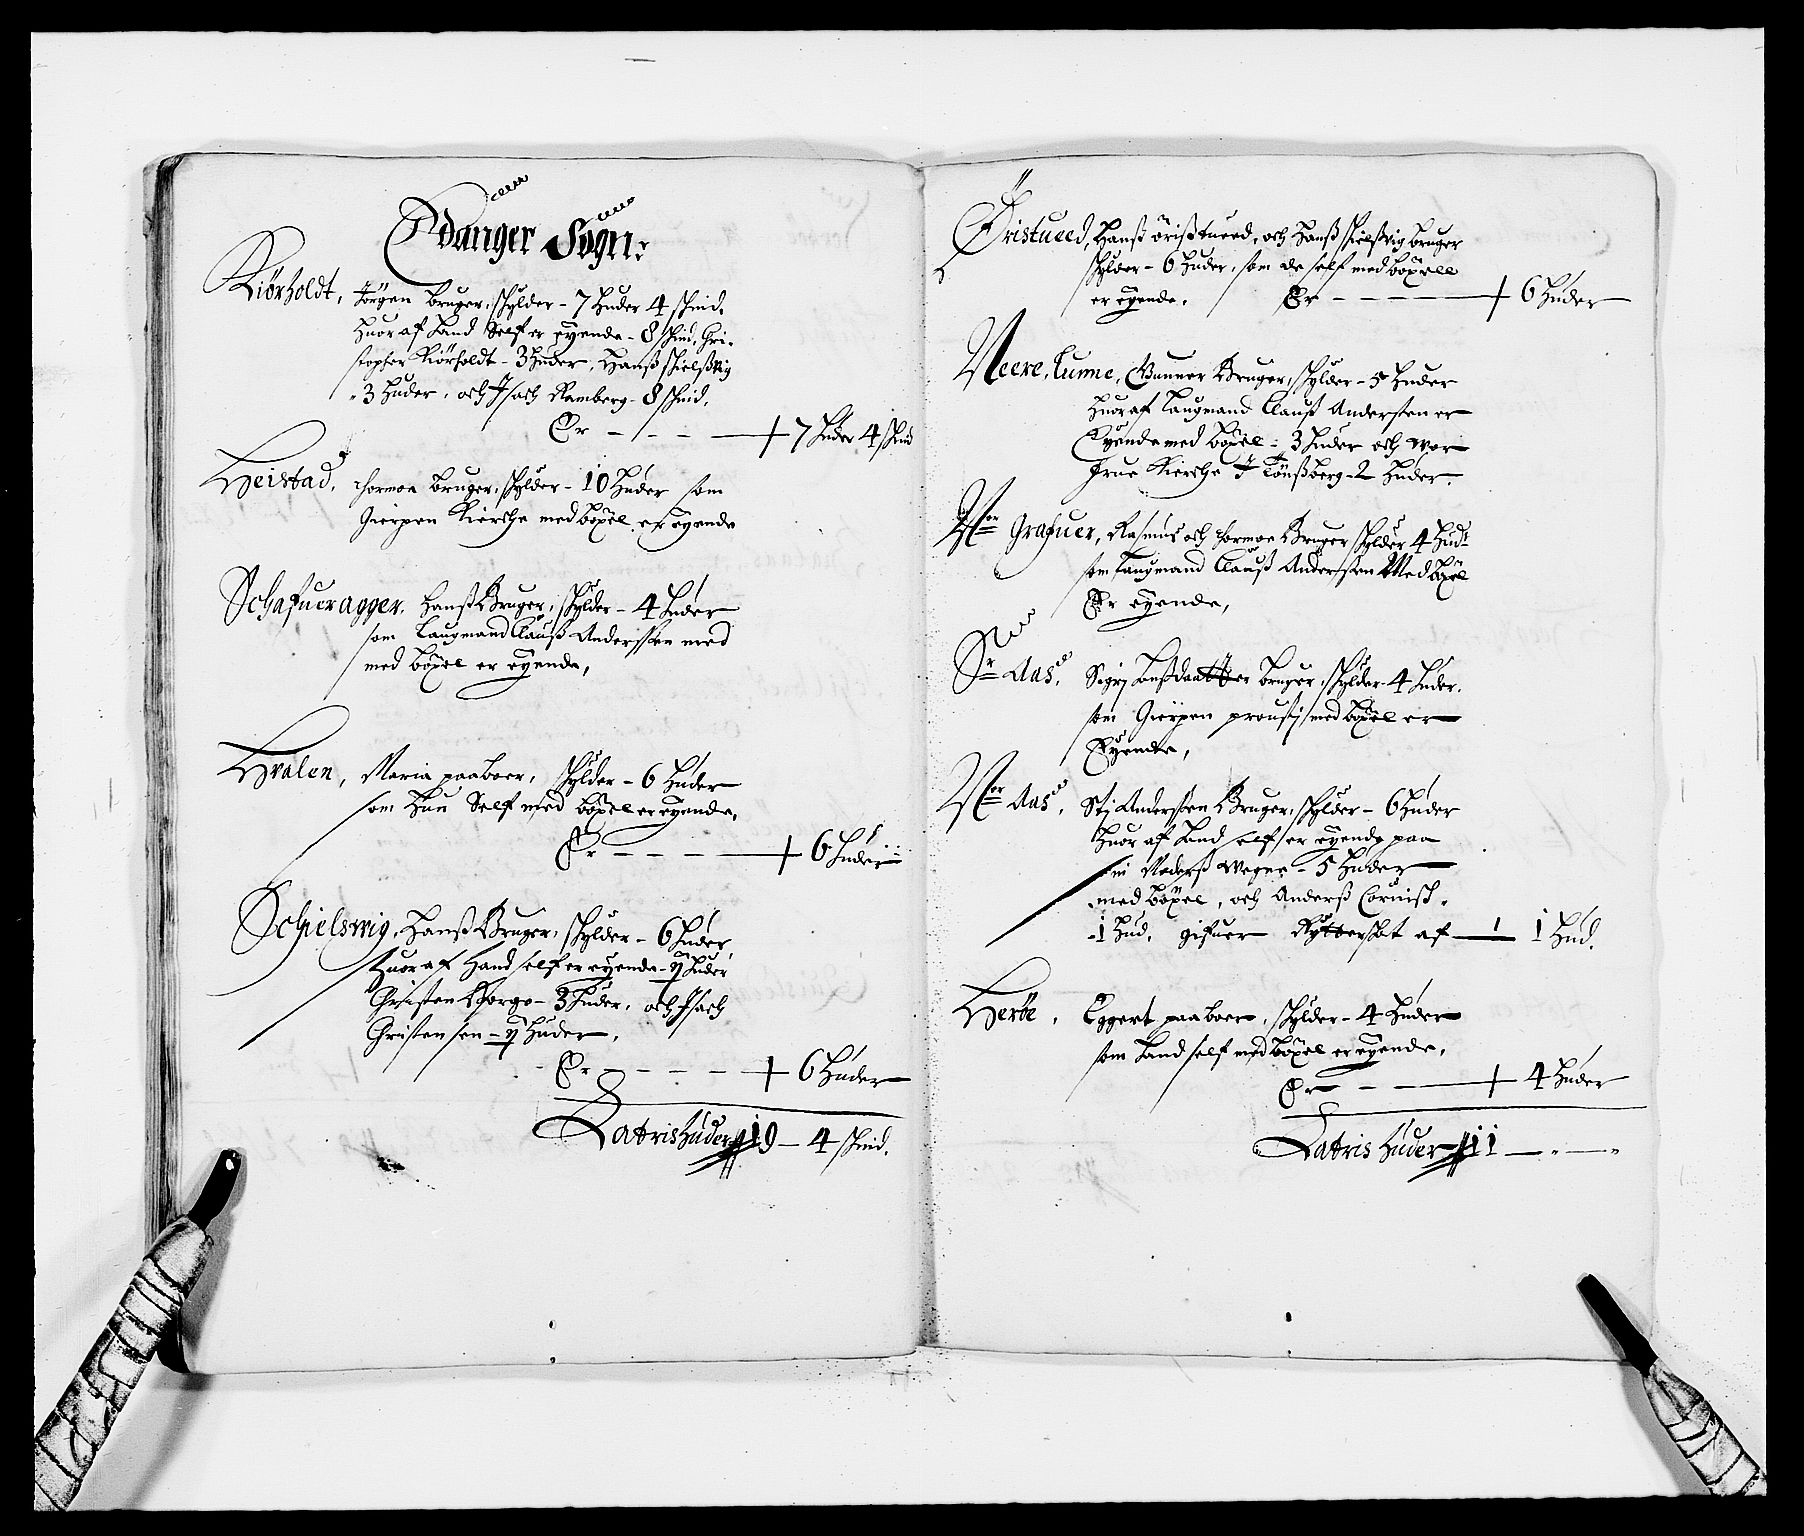 Edanger Sogn:
Kiörholdt, Jörgen bruger, schylder - 7 Huder 4 schind.
Huor af Hand Self er eyende - 8 schind, Chri-
stopher Kiörholdt - 3 Huder, Hanß schielßvig
- 3 Huder, och Jsach Ramberg - 8 schind.
Er - - - - 7 Huder 4 schind
Heistad, Thormoe bruger, schylder - 10 Huder som
Gierpen Kierche med böxel er eyende
Schafueragger, Hanß Bruger, schylder - 4 Huder
som Laugmand Clauß Anderssen med
med böxel er eyende,
Hvalen, Maria paaboer, schylder - 6 Huder
som Hun Self med böxel er eyende,
Er - - - - 6 Huder
Schielswig, Hanß Bruger, schylder - 6 Huder,
Huor af Hand self er eyende - ij Huder
Christen Borge - 3 Huder, och Jsach
Christensen - ij Huder,
Er - - - - 6 Huder
Latris Huder 19 - 4 schind.
Öristueed, Hanß örißtueed, och Hanß schielßvig bruger
schylder - 6 Huder, som de self med böxell
er eyende, Er - - - - 6 Huder
Neere, Lunne, Gunner Bruger, schylder - 5 Huder
Huor af Laugmand Clauß Anderssen er
Eyende med böxel - 3 Huder och wor
frue Kierche J Tönßberg - 2 Huder.
Ner Grafuer, Rasmus och Thormoe Bruger schylder 4 Hudr
som Laugmand Clauß Anderssen Med böxel
Er eyende,
Sr Aas, Sigrj datter bruger, schylder - 4 Huder,
som Gierpen proustj med böxel er
Eyende,
Ner Aas, Stj Anderssen Bruger, schylder - 6 Huder
Huor af Hand self er eyende paa
sin Moderß wegne - 5 Huder
med böxel, och Anderß Corniß.
- 1 Hud, gifuer Rÿtterschat af - 1 Hud.
Heröe, Eggert paaboer, schylder - 4 Huder
som Hand self med böxel er eyende,
Er - - - 4 Huder
Latris Huder 11 - " - "